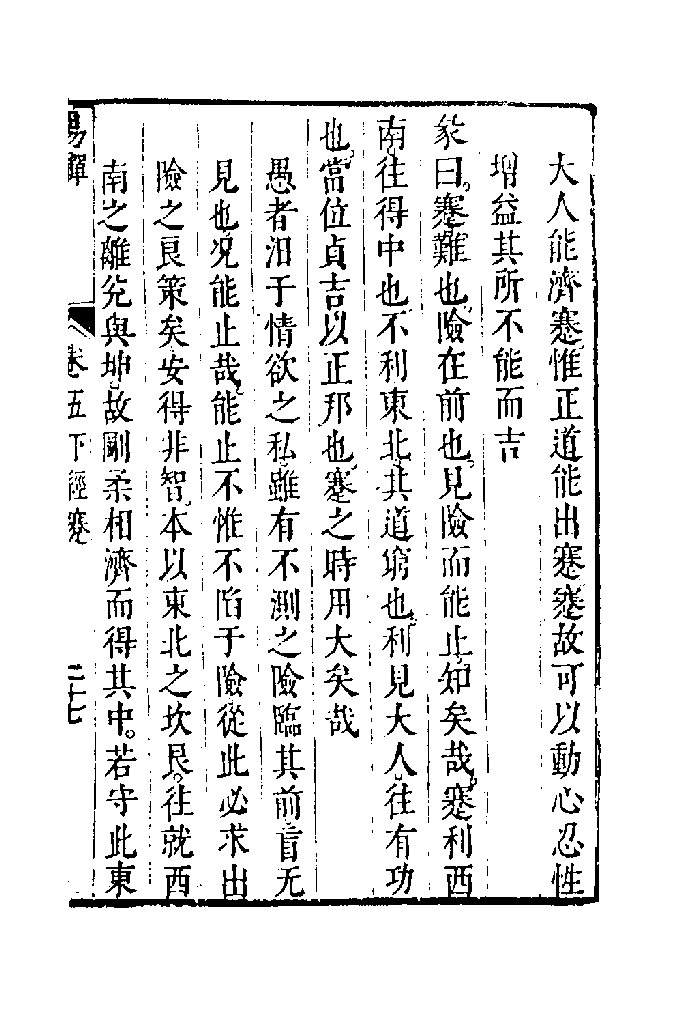 大人能濟蹇惟正道能出蹇蹇故可以動心忍性
增益其所不能而吉
彖曰蹇難也險在前也見險而能止知矣哉蹇利西
南往得中也不利東北其道窮也利見大人往有功
也當位貞吉以正邦也蹇之時用大矣哉
愚者汨于情欲之私雖有不測之險臨其前盲无
見也况能止哉能止不惟不陷于險從此必求出
險之良策矣安得非智本以東北之坎艮往就西
南之離兌與坤故剛柔相濟而得其中若守此東
易解 卷五下經蹇 二十七